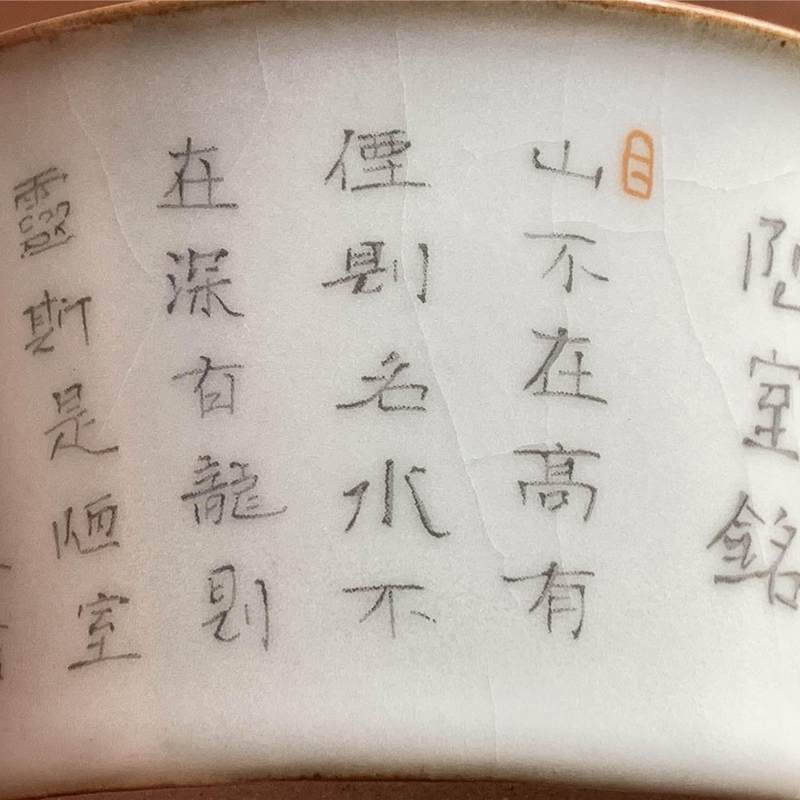 陋室銘
山不在高有
僊則名水不
在深有龍則
靈斯是陋室